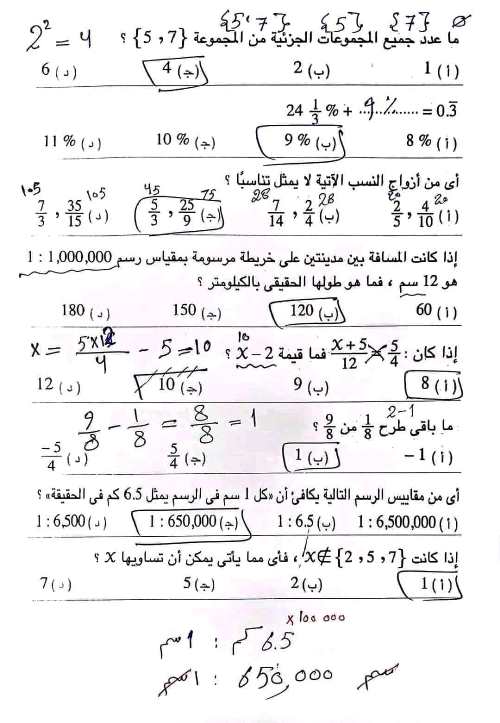 {5,7} {5} {7} ∅
2² = 4
ما عدد جميع المجموعات الجزئية من المجموعة {7 , 5} ؟
(أ) 1 (ب) 2 (ج) 4 (د) 6
24 1/3 % + ........9 %........ = 0.3̅
(أ) 8 % (ب) 9 % (ج) 10 % (د) 11 %
أى من أزواج النسب الآتية لا يمثل تناسبًا ؟
20 20 28 28 75 45 105 105
(أ) 2/5 , 4/10 (ب) 7/14 , 2/4 (ج) 5/3 , 25/9 (د) 7/3 , 35/15
إذا كانت المسافة بين مدينتين على خريطة مرسومة بمقياس رسم 1 : 1,000,000
هو 12 سم ، فما هو طولها الحقيقى بالكيلومتر ؟
(أ) 60 (ب) 120 (ج) 150 (د) 180
x = 5×12/4 - 5 = 10
10
إذا كان : x+5/12 = 5/4 فما قيمة x – 2 ؟
(أ) 8 (ب) 9 (ج) 10 (د) 12
9/8 - 1/8 = 8/8 = 1
2-1
ما باقى طرح 1/8 من 9/8 ؟
(أ) 1 – (ب) 1 (ج) 5/4 (د) –5/4
أى من مقاييس الرسم التالية يكافئ أن «كل 1 سم فى الرسم يمثل 6.5 كم فى الحقيقة» ؟
(أ) 1 : 6,500,000 (ب) 1 : 6.5 (ج) 1 : 650,000 (د) 1 : 6,500
إذا كانت x ∉ {2 , 5 , 7} ، فأى مما يأتى يمكن أن تساويها x ؟
(أ) 1 (ب) 2 (ج) 5 (د) 7
× 100 000
1 سم : 6.5 كم
1 سم : 650,000 سم